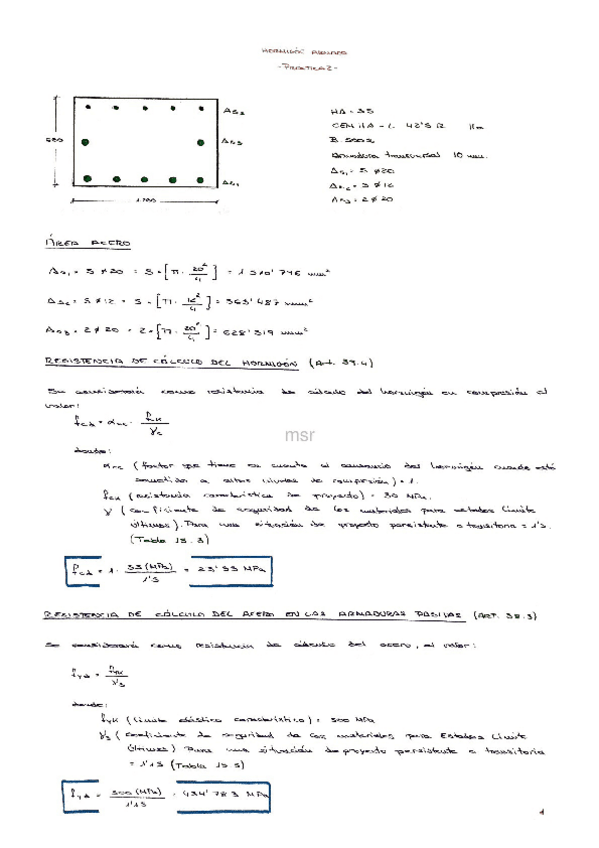 HORMIGÓN ARMADO
- PRÁCTICA 2 -
As2
As3
As1
500
1.000
HA - 35
CEM II/A - L 42'5 R
B 500 S
Armadura transversal 10 mm.
As1 = 5 ø 20
As3 = 2 ø 20
ÁREA ACERO
As1 = 5 ø 20 = 5 · [π · 20²/4] = 1570'796 mm²
As2 = 5 ø 12 = 5 · [π · 12²/4] = 565'487 mm²
As3 = 2 ø 20 = 2 · [π · 20²/4] = 628'319 mm²
RESISTENCIA DE CÁLCULO DEL HORMIGÓN (Art. 39.4)
Se considerará como resistencia de cálculo del hormigón en compresión el
valor:
fcd = αcc · fck/γc
msr
donde:
αcc (factor que tiene en cuenta el cansancio del hormigón cuando está
sometido a altos niveles de compresión) = 1.
fck (resistencia característica de proyecto) = MPa.
γ (coeficiente de seguridad de los materiales para estados límite
últimos). Para una situación de proyecto persistente o transitoria = 1'5.
(Tabla 15.3)
fcd = 1 · 35 (MPa)/1'5 = 23'33 MPa
RESISTENCIA DE CÁLCULO DEL ACERO EN LAS ARMADURAS PASIVAS (ART. 38.3)
Se considerará como resistencia de cálculo del acero, el valor:
fyd = fyk/γs
donde:
fyk (límite elástico característico) = 500 MPa
γs (coeficiente de seguridad de los materiales para Estados Límite
Últimos) Para una situación de proyecto persistente o transitoria
= 1'15 (Tabla 15.3)
fyd = 500 (MPa)/1'15 = 434'783 MPa
1